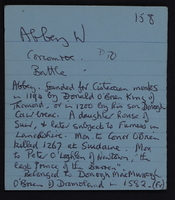 158
Abbey W
Corcomroe
Battle
Abbey. founded for Cistercian monks
in 1194 by Donald O'Brien King of
Thomond, or in 1200 by his son Donogh
Cairbreac. A daughter house of
Suir, & later subject to Furness in
Lancashire. Mon to Conor O'Brien
killed 1267 at Siudaine. Mon
to Peter O'Loghlen of Newtown, "the
last Prince of the Burren".
belonged to Donogh MacMurrogh
O'Brien of Dromoland in 1582.